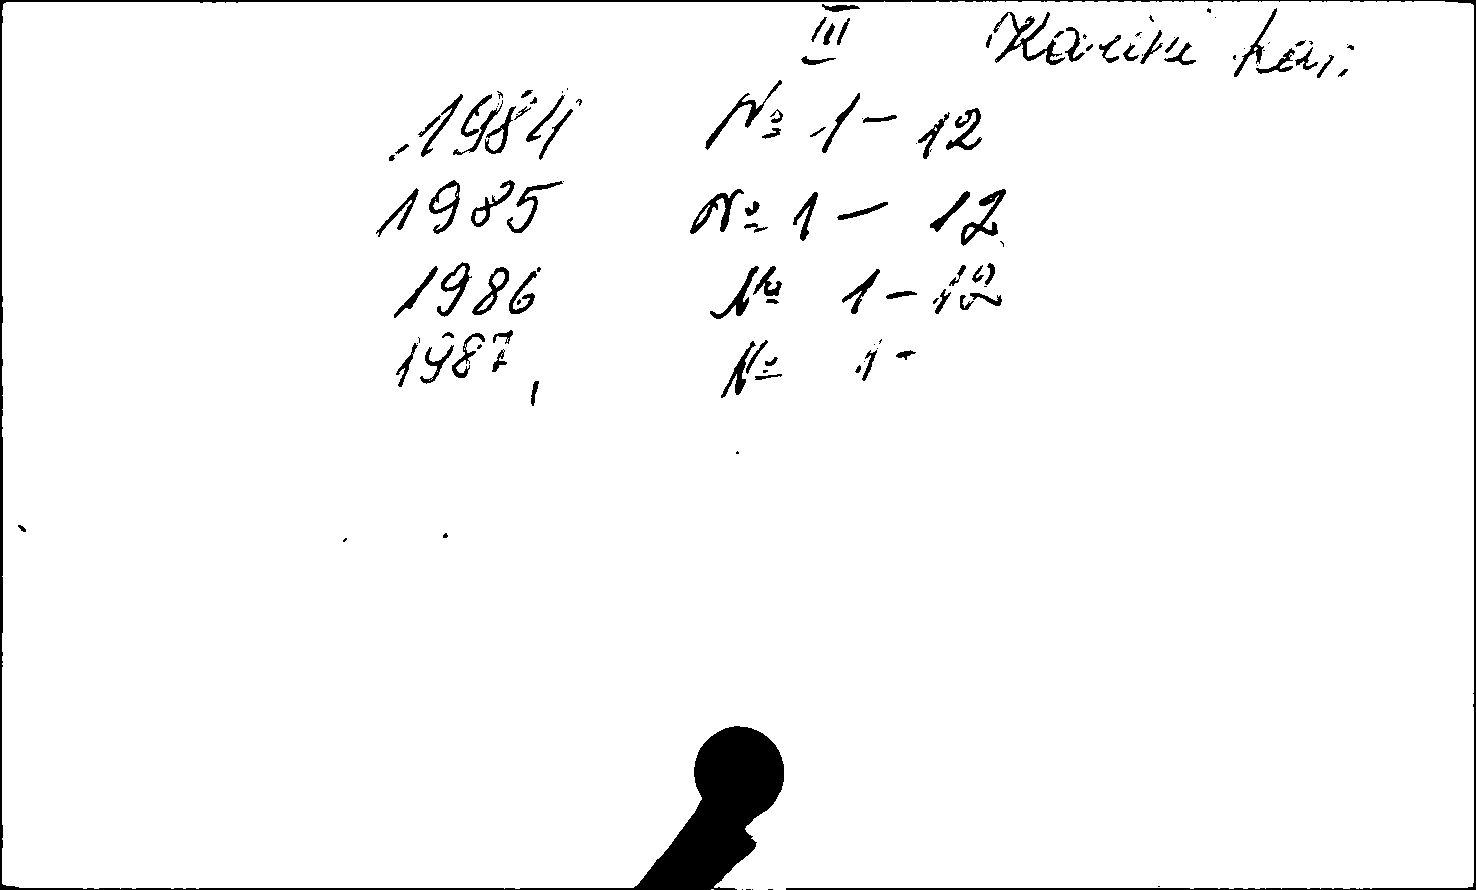 III
1984 № 1 - 12
1985 № 1 - 12
1986 № 1 - 12
1987, № 1 -